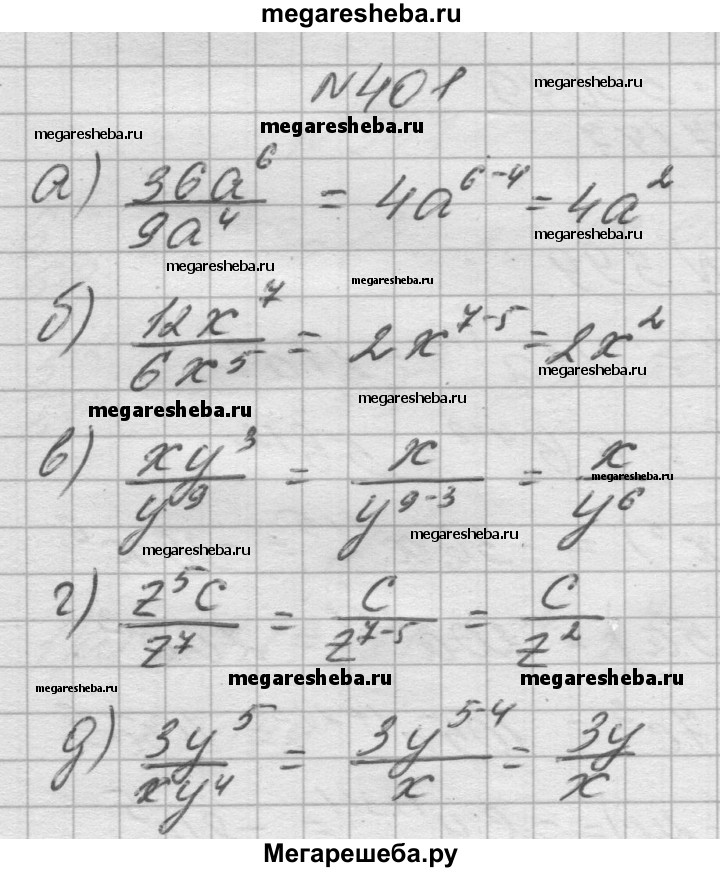 megaresheba.ru
№401
megaresheba.ru
megaresheba.ru
megaresheba.ru
а) 36a^6/9a^4 = 4a^(6-4) = 4a^2
megaresheba.ru
megaresheba.ru
megaresheba.ru
б) 12x^7/6x^5 = 2x^(7-5) = 2x^2
megaresheba.ru
megaresheba.ru
megaresheba.ru
в) xy^3/y^9 = x/y^(9-3) = x/y^6
megaresheba.ru
megaresheba.ru
megaresheba.ru
г) z^5c/z^7 = c/z^(7-5) = c/z^2
megaresheba.ru
megaresheba.ru
megaresheba.ru
д) 3y^5/xy^4 = 3y^(5-4)/x = 3y/x
Мегарешеба.ру